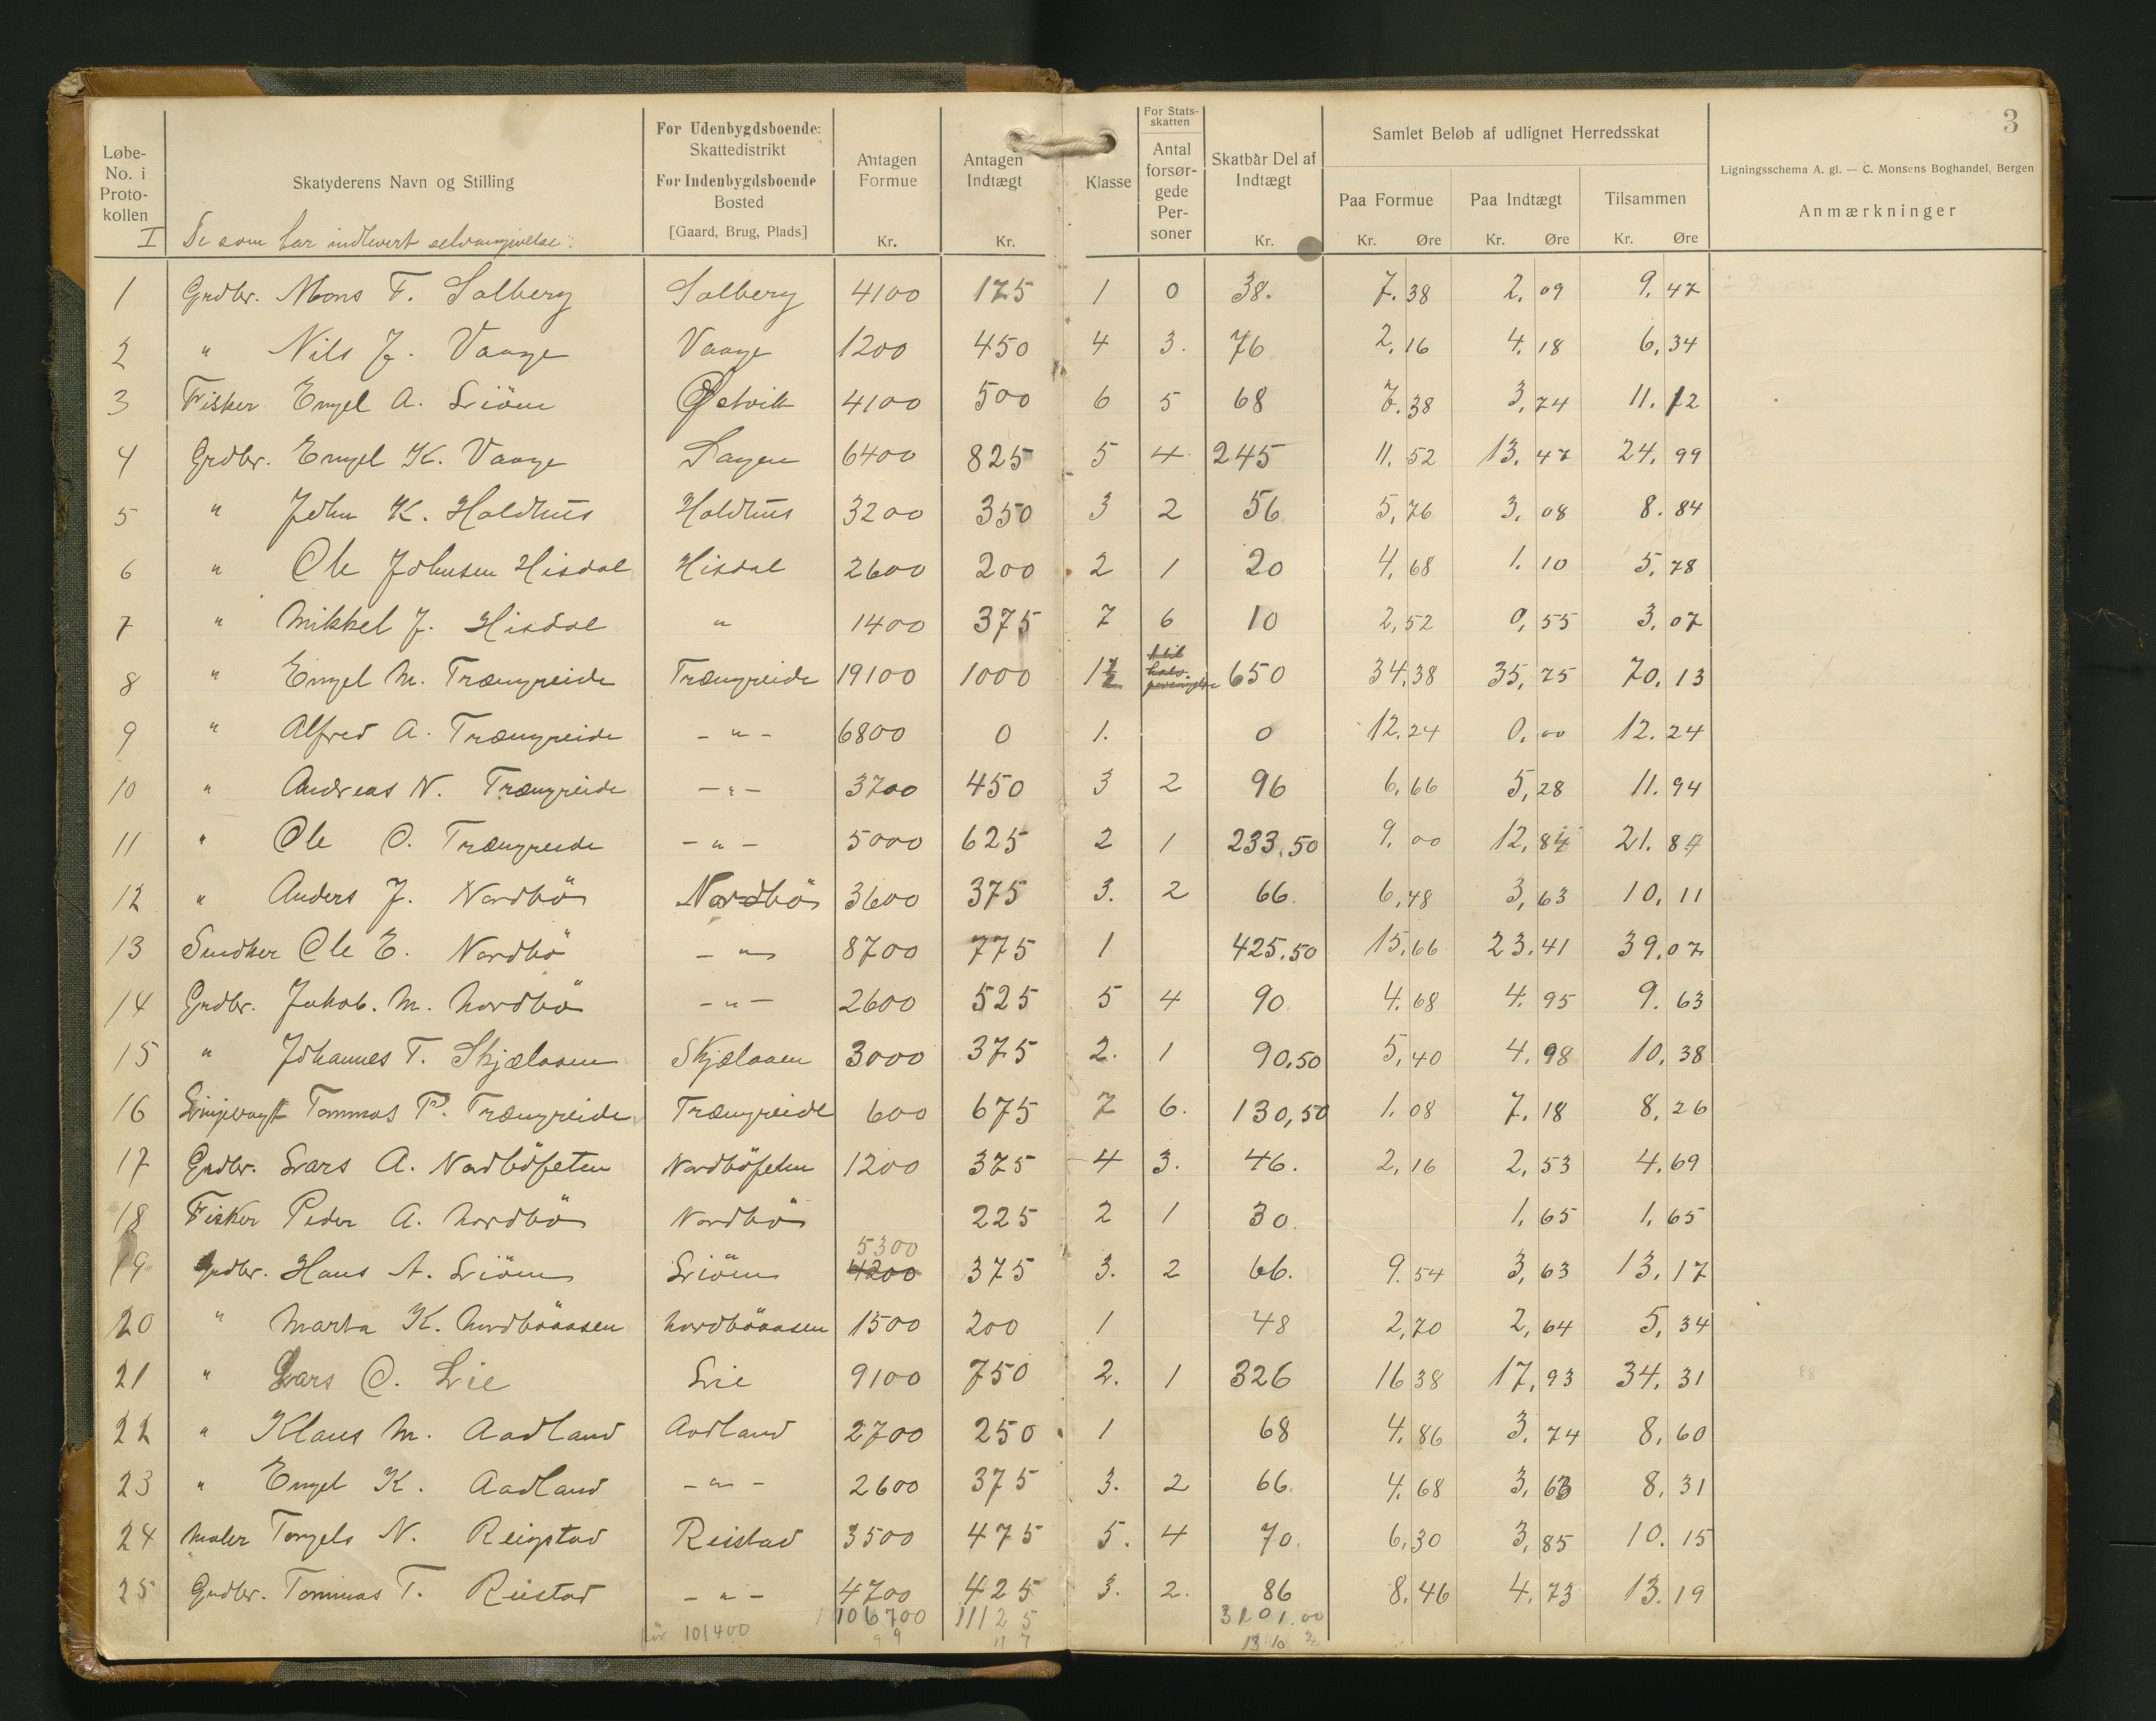 3
Løbe-No. i Proto-kollen
Skatyderens Navn og Stilling
For Udenbygdsboende: Skattedistrikt
For Indenbygdsboende Bosted
[Gaard, Brug, Plads]
Antagen Formue Kr.
Antagen Indtægt Kr.
Klasse
For Stats-skatten
Antal forsør-gede Per-soner
Skatbar Del af Indtægt Kr.
Samlet Beløb af udlignet Herredsskat
Paa Formue Kr. Øre
Paa Indtægt Kr. Øre
Tilsammen Kr. Øre
Ligningsschema A. gl. — C. Monsens Boghandel, Bergen
Anmærkninger
I De som har indlevert selvangivelse:
1 Grdbr. Mons T. Solberg Solberg 4100 175 1 0 38. 7.38 2,09 9,47
2 " Nils J. Vaage Vaage 1200 450 4 3. 76 2,16 4,18 6,34
3 Fisker Engel A. Liöen Østvik 4100 500 6 5 68 7.38 3,74 11.12
4 Grdbr. Engel K. Vaage Dagen 6400 825 5 4 245 11.52 13,47 24,99
5 " John K. Holdhus Holdhus 3200 350 3 2 56 5,76 3,08 8.84
6 " Ole Johnsen Hisdal Hisdal 2600 200 2 1 20 4,68 1.10 5,78
7 " Mikkel J. Hisdal " 1400 375 7 6 10 2,52 0,55 3,07
8 " Engel M. Trængreide Trængreide 19100 1000 1 650 34.38 35,75 70,13
9 " Alfred A. Trængreide - " - 6800 0 1. 0 12.24 0,00 12.24
10 " Andreas N. Trængreide - " - 3700 450 3 2 96 6,66 5,28 11.94
11 " Ole O. Trængreide - " - 5000 625 2 1 233.50 9,00 12,84 21.84
12 " Anders J. Nordbö Nordbö 3600 375 3. 2 66. 6,48 3,63 10,11
13 Snedker Ole E. Nordbö - " - 8700 775 1 425.50 15,66 23.41 39.07
14 Grdbr. Jakob. M. Nordbö - " - 2600 525 5 4 90 4,68 4,95 9.63
15 " Johannes T. Skjælaaen Skjælaaen 3000 375 2. 1 90,50 5,40 4,98 10,38
16 Linjevogt Tommas P. Trængreide Trængreide 600 675 7 6. 130,50 1.08 7.18 8,26
17 Grdbr. Lars A. Nordböfeten Nordböfeten 1200 375 4 3. 46. 2,16 2,53 4,69
18 Fisker Peder A. Nordbö Nordbö 225 2 1 30. 1,65 1,65
5300
19 Grdbr. Hans A. Liöen Liöen 4200 375 3. 2 66. 9.54 3,63 13,17
20 " Marta K. Nordböaasen Nordböaasen 1500 200 1 48 2,70 2,64 5,34
21 " Lars O. Lie Lie 9100 750 2. 1 326 16 38 17,93 34,31
22 " Klaus M. Aadland Aadland 2700 250 1 68 4,86 3,74 8,60
23 " Engel K. Aadland - " - 2600 375 3. 2 66 4,68 3,63 8,31
24 Maler Torgels N. Reigstad Reistad 3500 475 5. 4 70. 6,30 3,85 10.15
25 Grdbr. Tommas T. Reistad - " - 4700 425 3. 2. 86 8,46 4,73 13.19
för 101400 106700 11125 3201.00